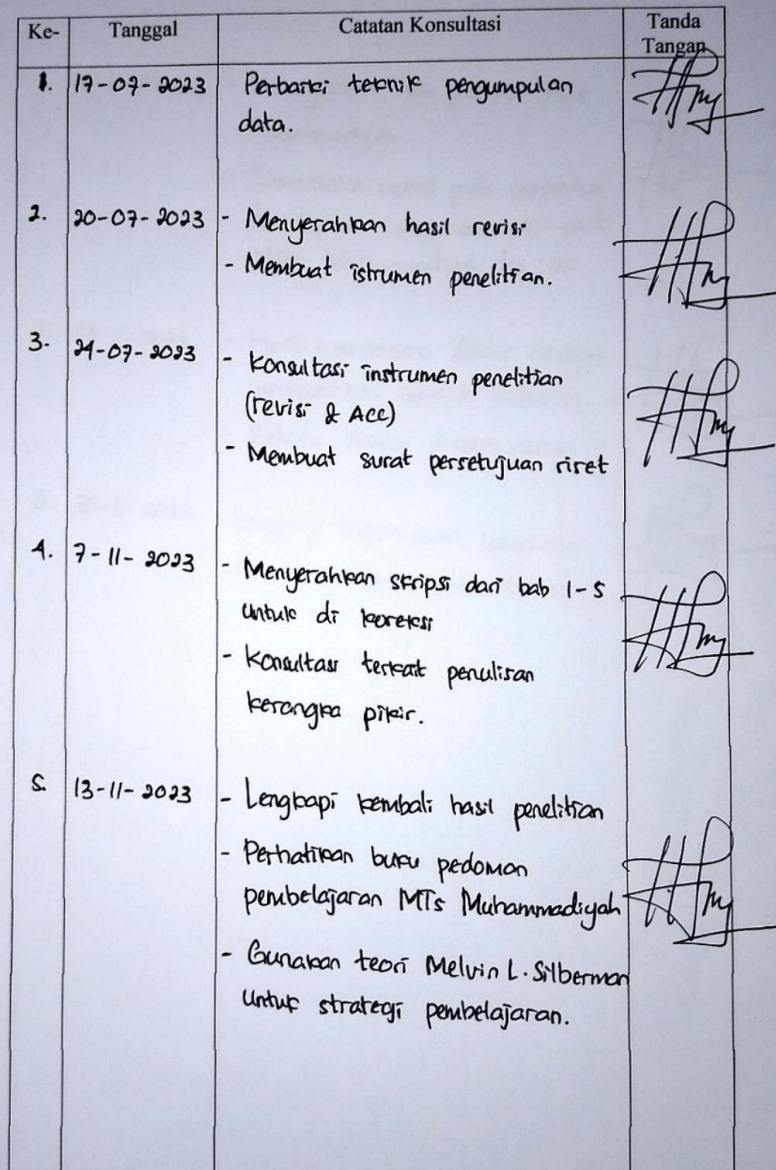 Ke- Tanggal Catatan Konsultasi Tanda Tangan
1. 17-07-2023 Perbaiki teknik pengumpulan
data.
2. 20-07-2023 - Menyerahkan hasil revisi
- Membuat istrumen penelitian.
3. 24-07-2023 - Konsultasi instrumen penelitian
(revisi & Acc)
- Membuat surat persetujuan riset
4. 7-11-2023 - Menyerahkan skripsi dari bab 1-5
untuk di koreksi
- Konsultasi terkait penulisan
kerangka pikir.
5. 13-11-2023 - Lengkapi kembali hasil penelitian
- Perhatikan buku pedoman
pembelajaran MTs Muhammadiyah
- Gunakan teori Melvin L. Silberman
untuk strategi pembelajaran.